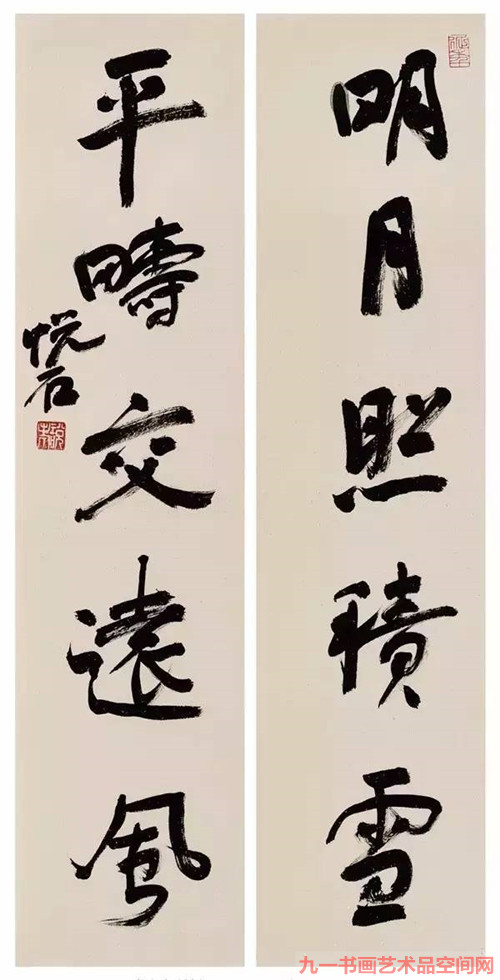 明月照積雪
平疇交遠風
悦石
九一书画艺术品空间网